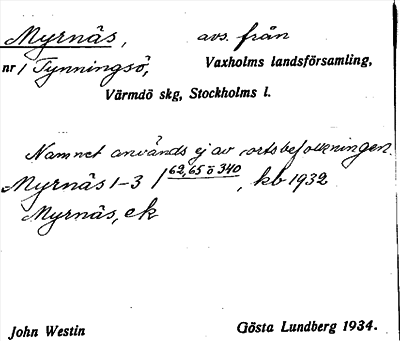 Myrnäs, avs. från
nr 1 Tynningsö, Vaxholms landsförsamling,
Värmdö skg, Stockholms l.
Namnet används ej av ortsbefolkningen.
Myrnäs 1-3 / 62, 65 ö 340, kb 1932
Myrnäs, ek
John Westin Gösta Lundberg 1934.